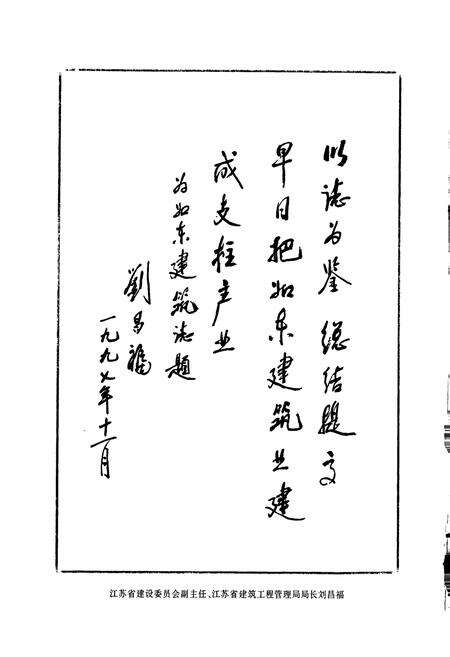 以志为鉴 总结提高
早日把如东建筑业建
成支柱产业
为如东建筑志题
刘昌福
一九九七年十一月
江苏省建设委员会副主任、江苏省建筑工程管理局局长刘昌福